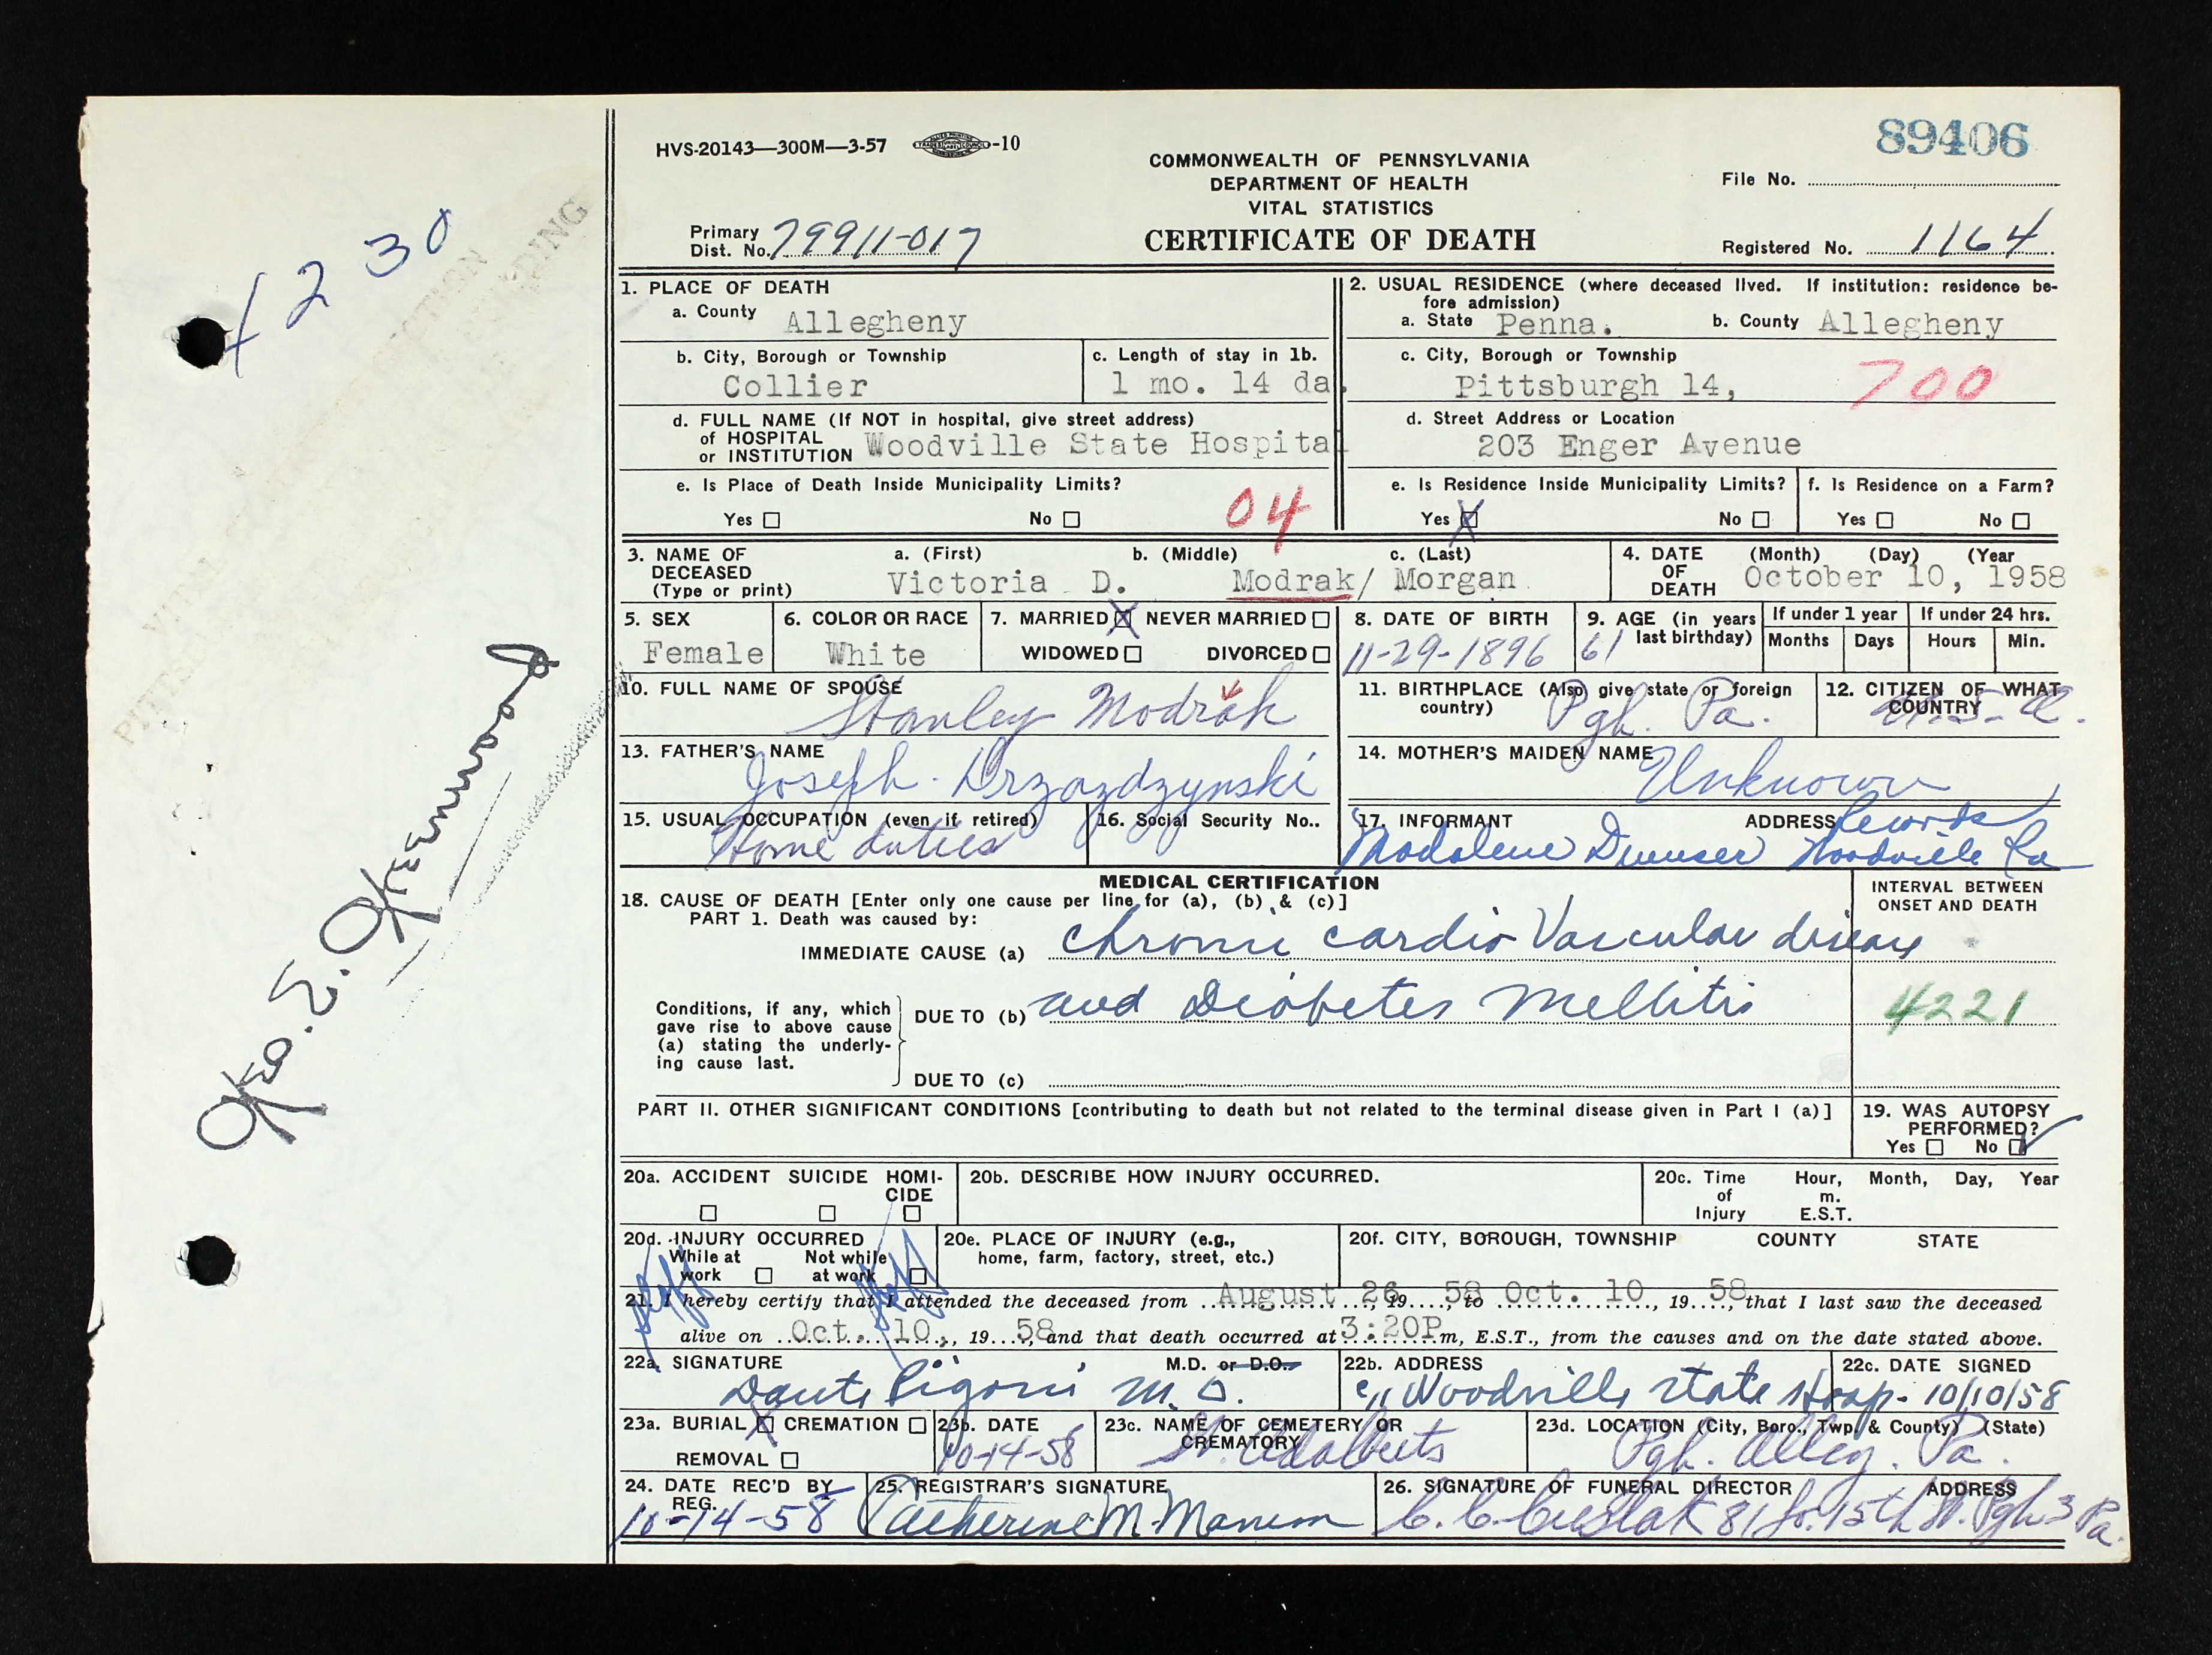 89406
HVS-20143—300M—3-57 -10
COMMONWEALTH OF PENNSYLVANIA
DEPARTMENT OF HEALTH
VITAL STATISTICS
CERTIFICATE OF DEATH
File No.
Primary
Dist. No. 79911-017
Registered No. 1164
4230
1. PLACE OF DEATH
a. County Allegheny
b. City, Borough or Township
Collier
c. Length of stay in 1b.
1 mo. 14 da.
d. FULL NAME (If NOT in hospital, give street address)
of HOSPITAL
or INSTITUTION Woodville State Hospital
e. Is Place of Death Inside Municipality Limits?
Yes No 04
2. USUAL RESIDENCE (where deceased lived. If institution: residence be-
fore admission)
a. State Penna. b. County Allegheny
c. City, Borough or Township
Pittsburgh 14, 700
d. Street Address or Location
203 Enger Avenue
e. Is Residence Inside Municipality Limits?
Yes X No
f. Is Residence on a Farm?
Yes No
3. NAME OF
DECEASED
(Type or print)
a. (First) b. (Middle) c. (Last)
Victoria D. Modrak/ Morgan
4. DATE
OF
DEATH
(Month) (Day) (Year
October 10, 1958
5. SEX
Female
6. COLOR OR RACE
White
7. MARRIED X NEVER MARRIED
WIDOWED DIVORCED
8. DATE OF BIRTH
11-29-1896
9. AGE (in years
last birthday)
61
If under 1 year
Months Days
If under 24 hrs.
Hours Min.
10. FULL NAME OF SPOUSE
Stanley Modrak
11. BIRTHPLACE (Also give state or foreign
country)
Pgh. Pa.
12. CITIZEN OF WHAT
COUNTRY
U.S.A.
13. FATHER'S NAME
Joseph Drzazdzynski
14. MOTHER'S MAIDEN NAME
Unknown
15. USUAL OCCUPATION (even if retired)
Home duties
16. Social Security No..
17. INFORMANT ADDRESS
Records
Woodville Pa
MEDICAL CERTIFICATION
18. CAUSE OF DEATH [Enter only one cause per line for (a), (b) & (c)]
PART 1. Death was caused by:
IMMEDIATE CAUSE (a) Chronic cardio Vascular disease
Conditions, if any, which
gave rise to above cause
(a) stating the underly-
ing cause last.
DUE TO (b) and Diabetes Mellitis
DUE TO (c)
INTERVAL BETWEEN
ONSET AND DEATH
4221
PART II. OTHER SIGNIFICANT CONDITIONS [contributing to death but not related to the terminal disease given in Part I (a)]
19. WAS AUTOPSY
PERFORMED?
Yes No
20a. ACCIDENT SUICIDE HOMI-
CIDE
20b. DESCRIBE HOW INJURY OCCURRED.
20c. Time
of
Injury
Hour, Month, Day, Year
m.
E.S.T.
20d. INJURY OCCURRED
While at
work
Not while
at work
20e. PLACE OF INJURY (e.g.,
home, farm, factory, street, etc.)
20f. CITY, BOROUGH, TOWNSHIP COUNTY STATE
21. I hereby certify that I attended the deceased from August 26, 19 58 to Oct. 10, 19 58, that I last saw the deceased
alive on Oct. 10, 19 58 and that death occurred at 3:20P m, E.S.T., from the causes and on the date stated above.
22a. SIGNATURE M.D. or D.O.
Dante Pigoni M.D.
22b. ADDRESS
Woodville State Hosp.
22c. DATE SIGNED
10/10/58
23a. BURIAL X CREMATION
REMOVAL
23b. DATE
10-14-58
23c. NAME OF CEMETERY OR
CREMATORY
St. Adalberts
23d. LOCATION (City, Boro., Twp. & County) (State)
Pgh. Alleg. Pa.
24. DATE REC'D BY
REG.
10-14-58
25. REGISTRAR'S SIGNATURE
Catherine M.
26. SIGNATURE OF FUNERAL DIRECTOR ADDRESS
C. C. 81 So. 15th St. Pgh 3 Pa.